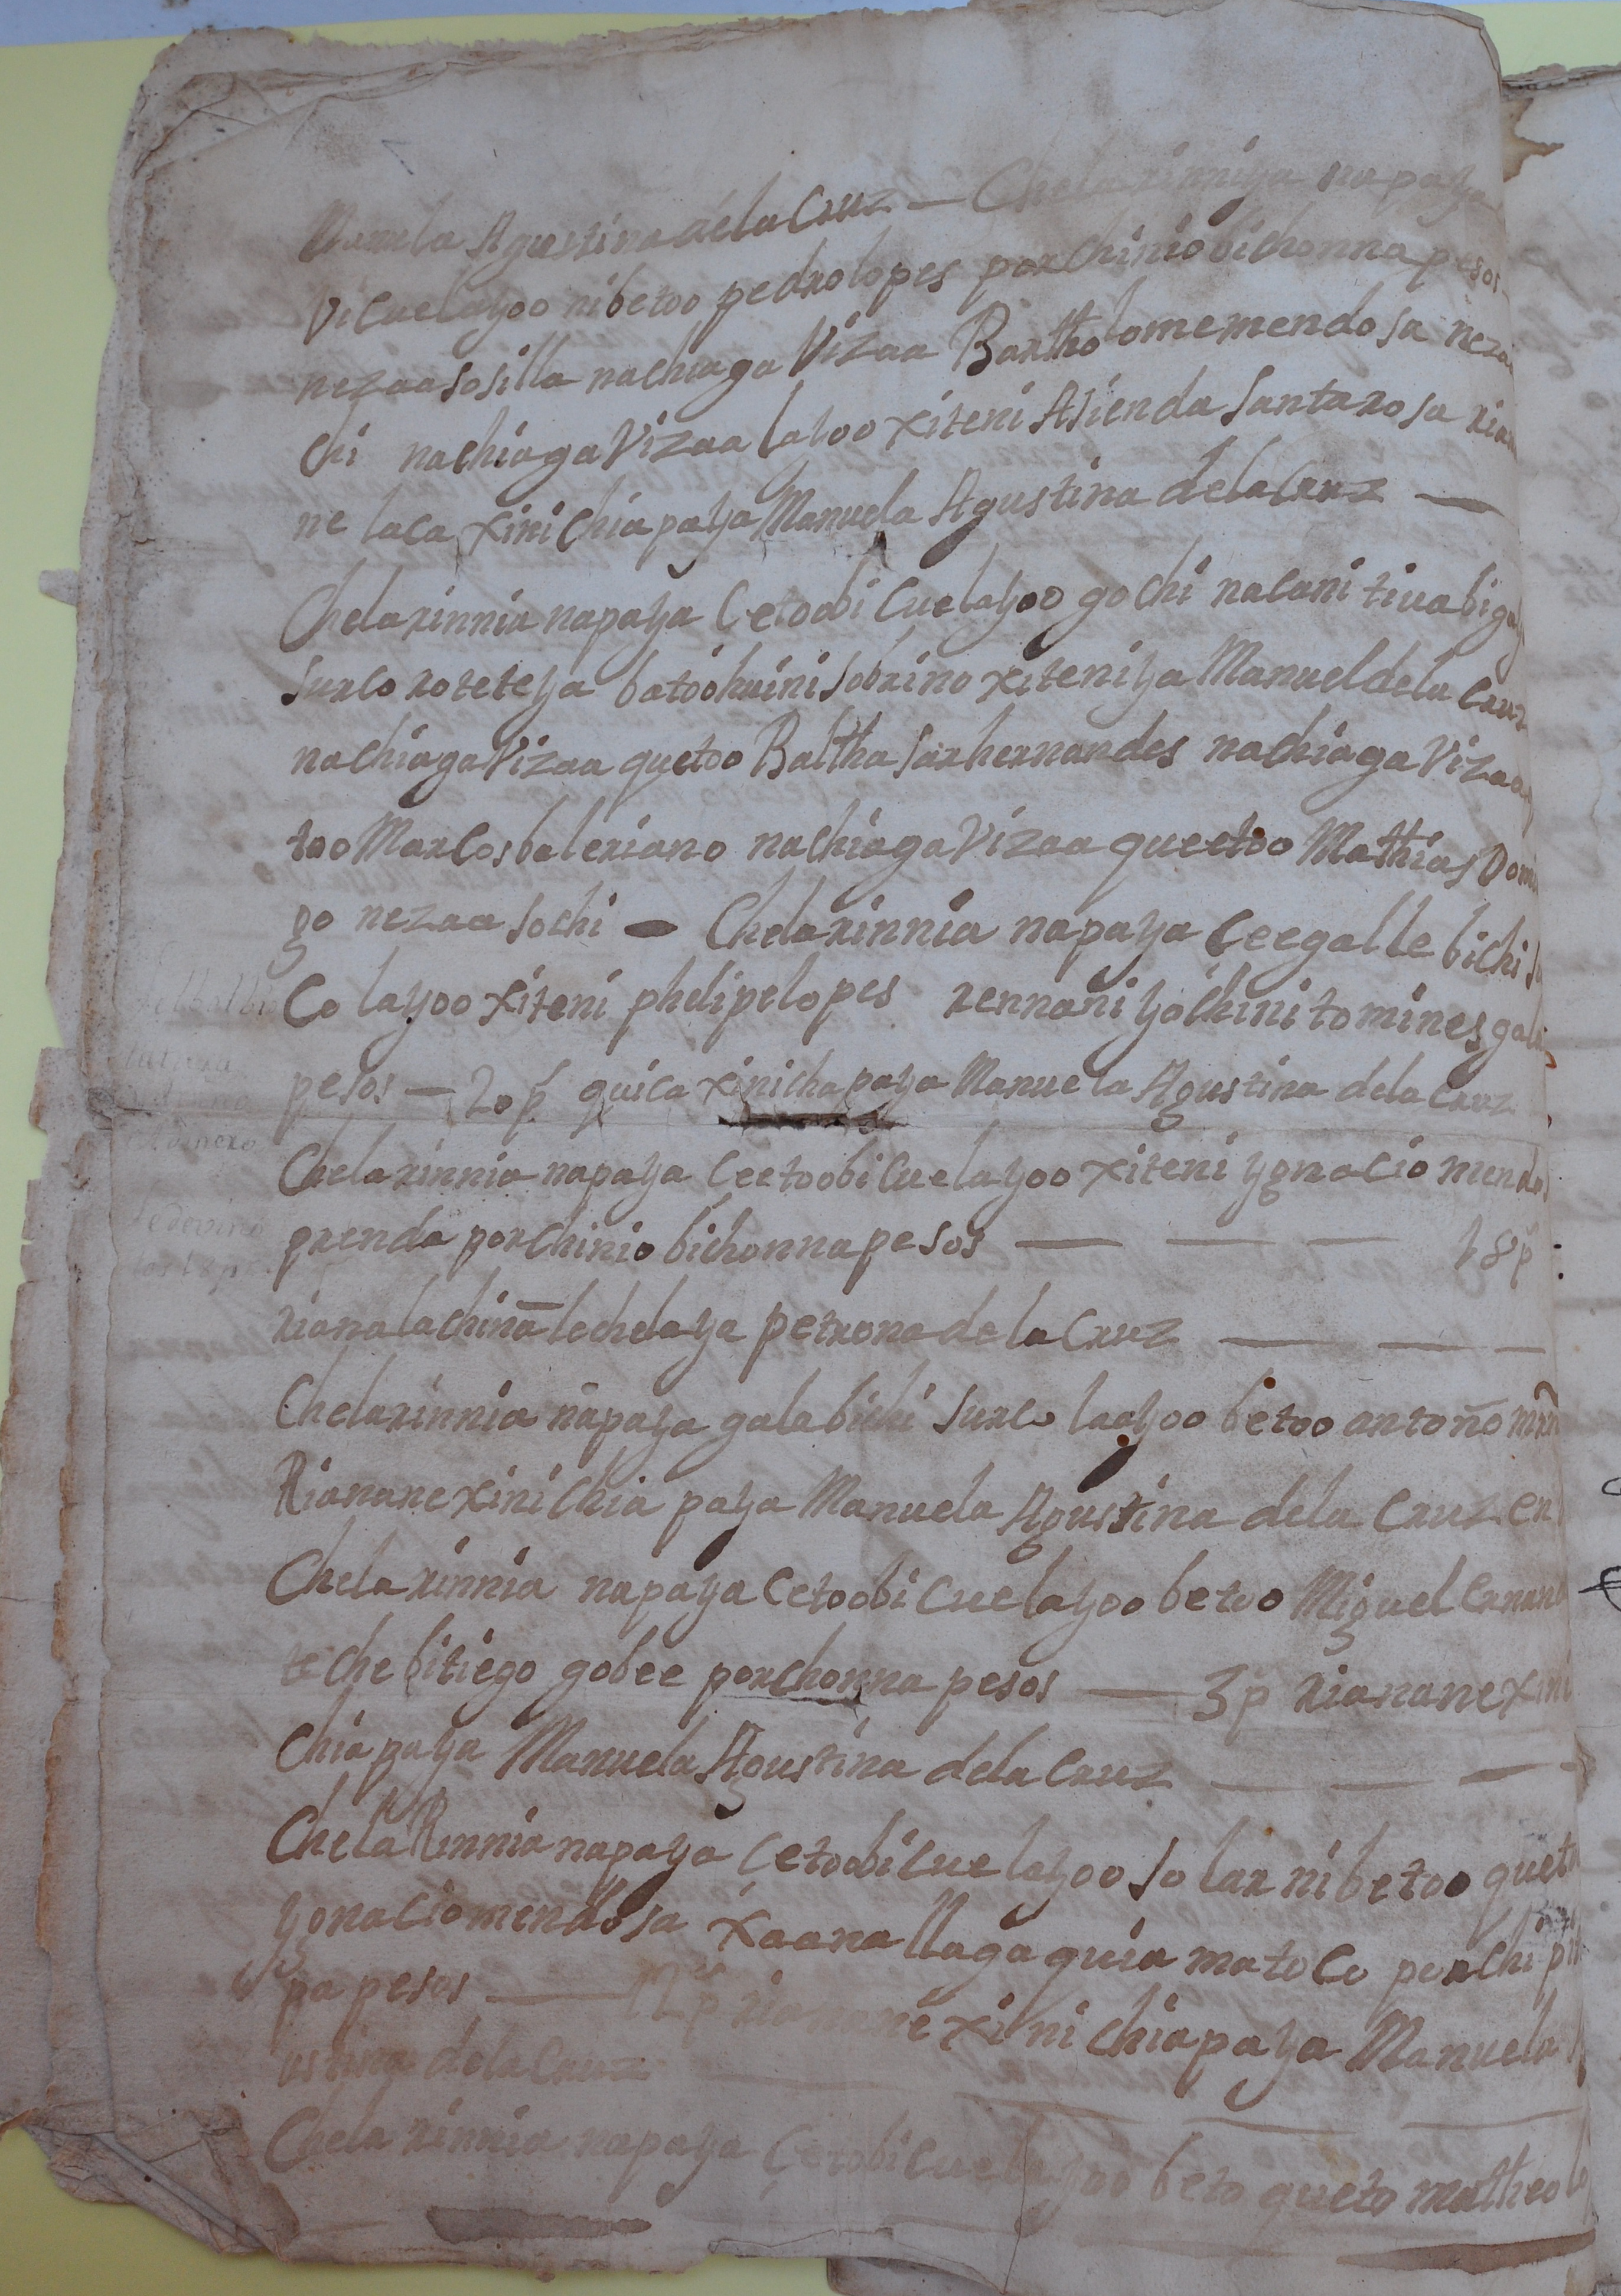 Manuela Agustina dela Cruz — Chela rinniya napaya
Vicuelayoo nibetoo pedrolopes porchiniobichonna pesos
nezaa sosilla nachiaga Vizaa Bartholomemendosa neza
chi nachiaga Vizaa layoo xiteni Asienda Santarosa
ne laca xinichiapaya Manuela Agustina delaCruz —
Chelarinnia napaya Cetoobi Cuelayoo gochi nacani tiuabiga
surco roteteya batoohuini sobrino xiteniya Manueldela Cruz
nachiagaVizaa quetoo Balthasarhernandes nachiaga Vizaa
too Marcosbaleriano nachiaga Vizaa queetoo Mathias Dom
go nezaa sochi — Chelarinnia napaya Ceegalle bichi
Co layoo xiteni phelipelopes rennani yochini tomines gal
pesos — 20 p quica xinichapaya Manuela Agustina dela Cruz
Chelarinnia napaya Ceetoobi Cuelayoo xiteni ygnacio mendo
prenda porChinio bichonnapesos — — — 18 p
riana lachina lechelaya petrona dela Cruz — — —
Chelarinnia napaya galabichi surco laayoo betoo antoño
Rianane xinichia paya Manuela Agustina dela Cruz en
Chela rinnia napaya Cetoobi Cuelayoo betoo Miguel Ernan
te che bitiego gobee porchonna pesos — 3 p rianane xini
Chiapaya Manuela Agustina dela Cruz — — —
Chela Rinnia napaya Cetoobi Cuelayoo solar nibetoo quet
ygnaciomendosa xaana llaga quia matoco porchi
pa pesos — 12 p rianane xinichiapaya Manuela
ustina dela Cruz
Chela rinnia napaya Cetobicuelayoo beto queto matheo